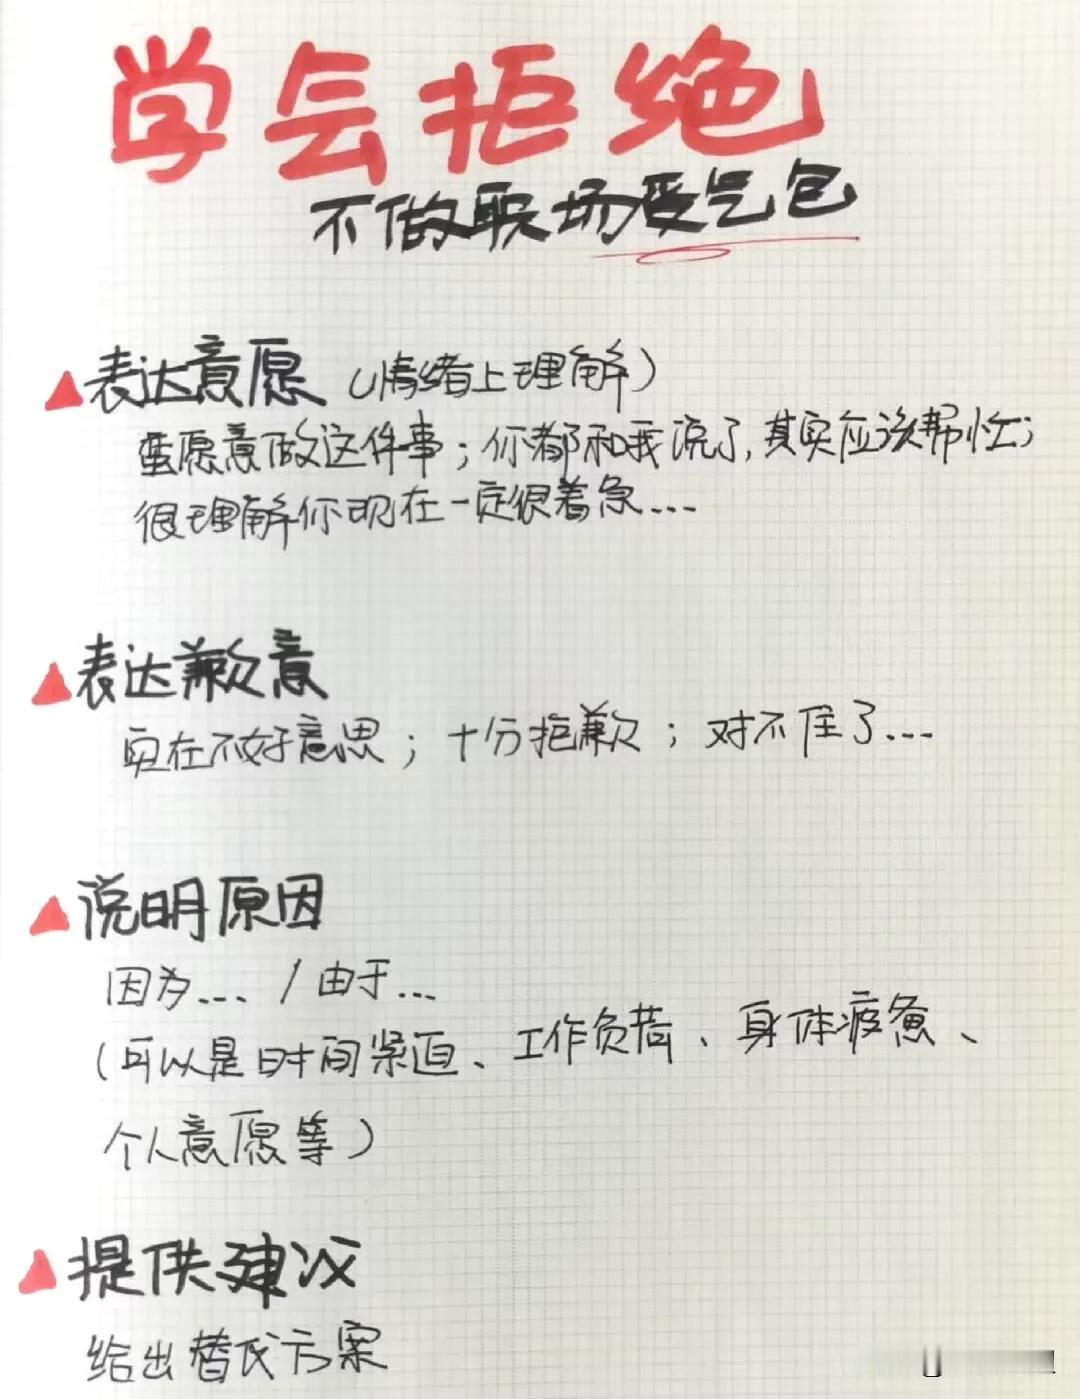 学会拒绝
不做职场受气包
表达意愿（情绪上理解）
蛮愿意做这件事；你都和我说了，其实应该帮忙；
很理解你现在一定很着急...
表达歉意
实在不好意思；十分抱歉；对不住了...
说明原因
因为.../由于...
（可以是时间紧迫、工作负荷、身体疲惫、
个人意愿等）
提供建议
给出替代方案